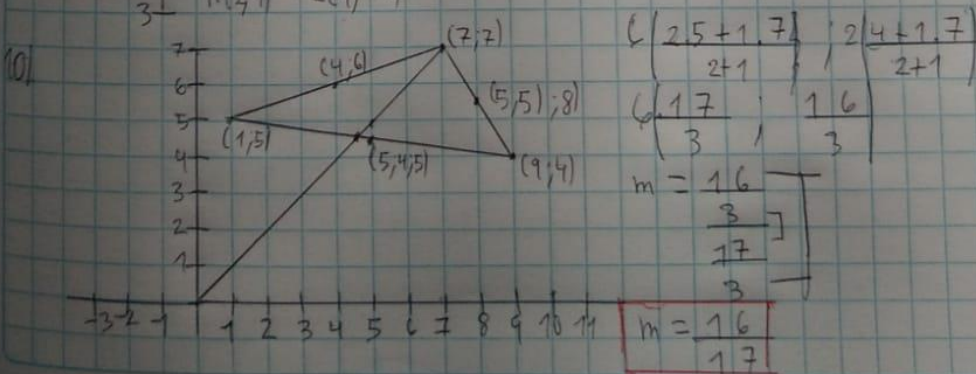 10)
7
6
5
4
3
2
1
-3 -2 -1 1 2 3 4 5 6 7 8 9 10 11
(7;7)
(4;6)
(5,5);8)
(1;5)
(5;4,5)
(9;4)
G(2.5+1.7/2+1 ; 2(4+1.7/2+1)
G(17/3 ; 16/3)
m = 16/3 / 17/3
m = 16/17